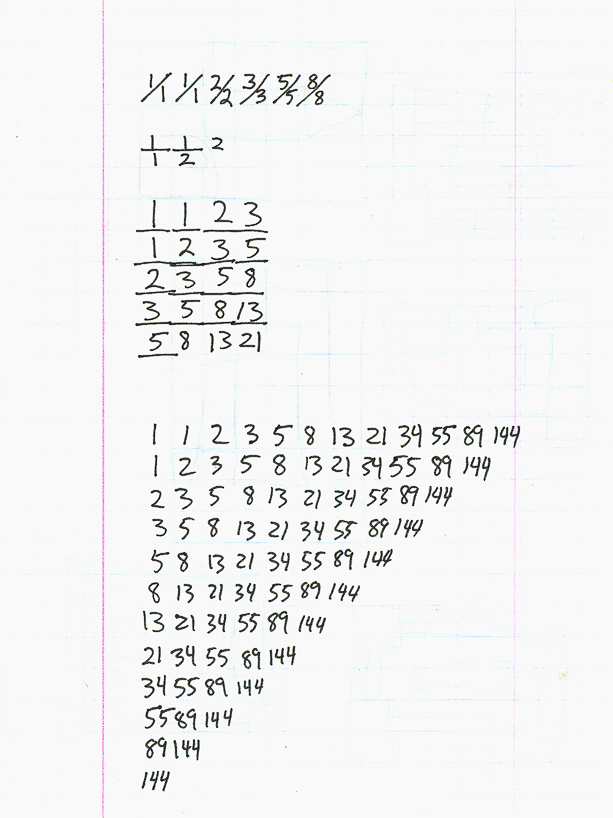 1/1 1/1 2/2 3/3 5/5 8/8
1/1 1/2 2
1 1 2 3
1 2 3 5
2 3 5 8
3 5 8 13
5 8 13 21
1 1 2 3 5 8 13 21 34 55 89 144
1 2 3 5 8 13 21 34 55 89 144
2 3 5 8 13 21 34 55 89 144
3 5 8 13 21 34 55 89 144
5 8 13 21 34 55 89 144
8 13 21 34 55 89 144
13 21 34 55 89 144
21 34 55 89 144
34 55 89 144
55 89 144
89 144
144